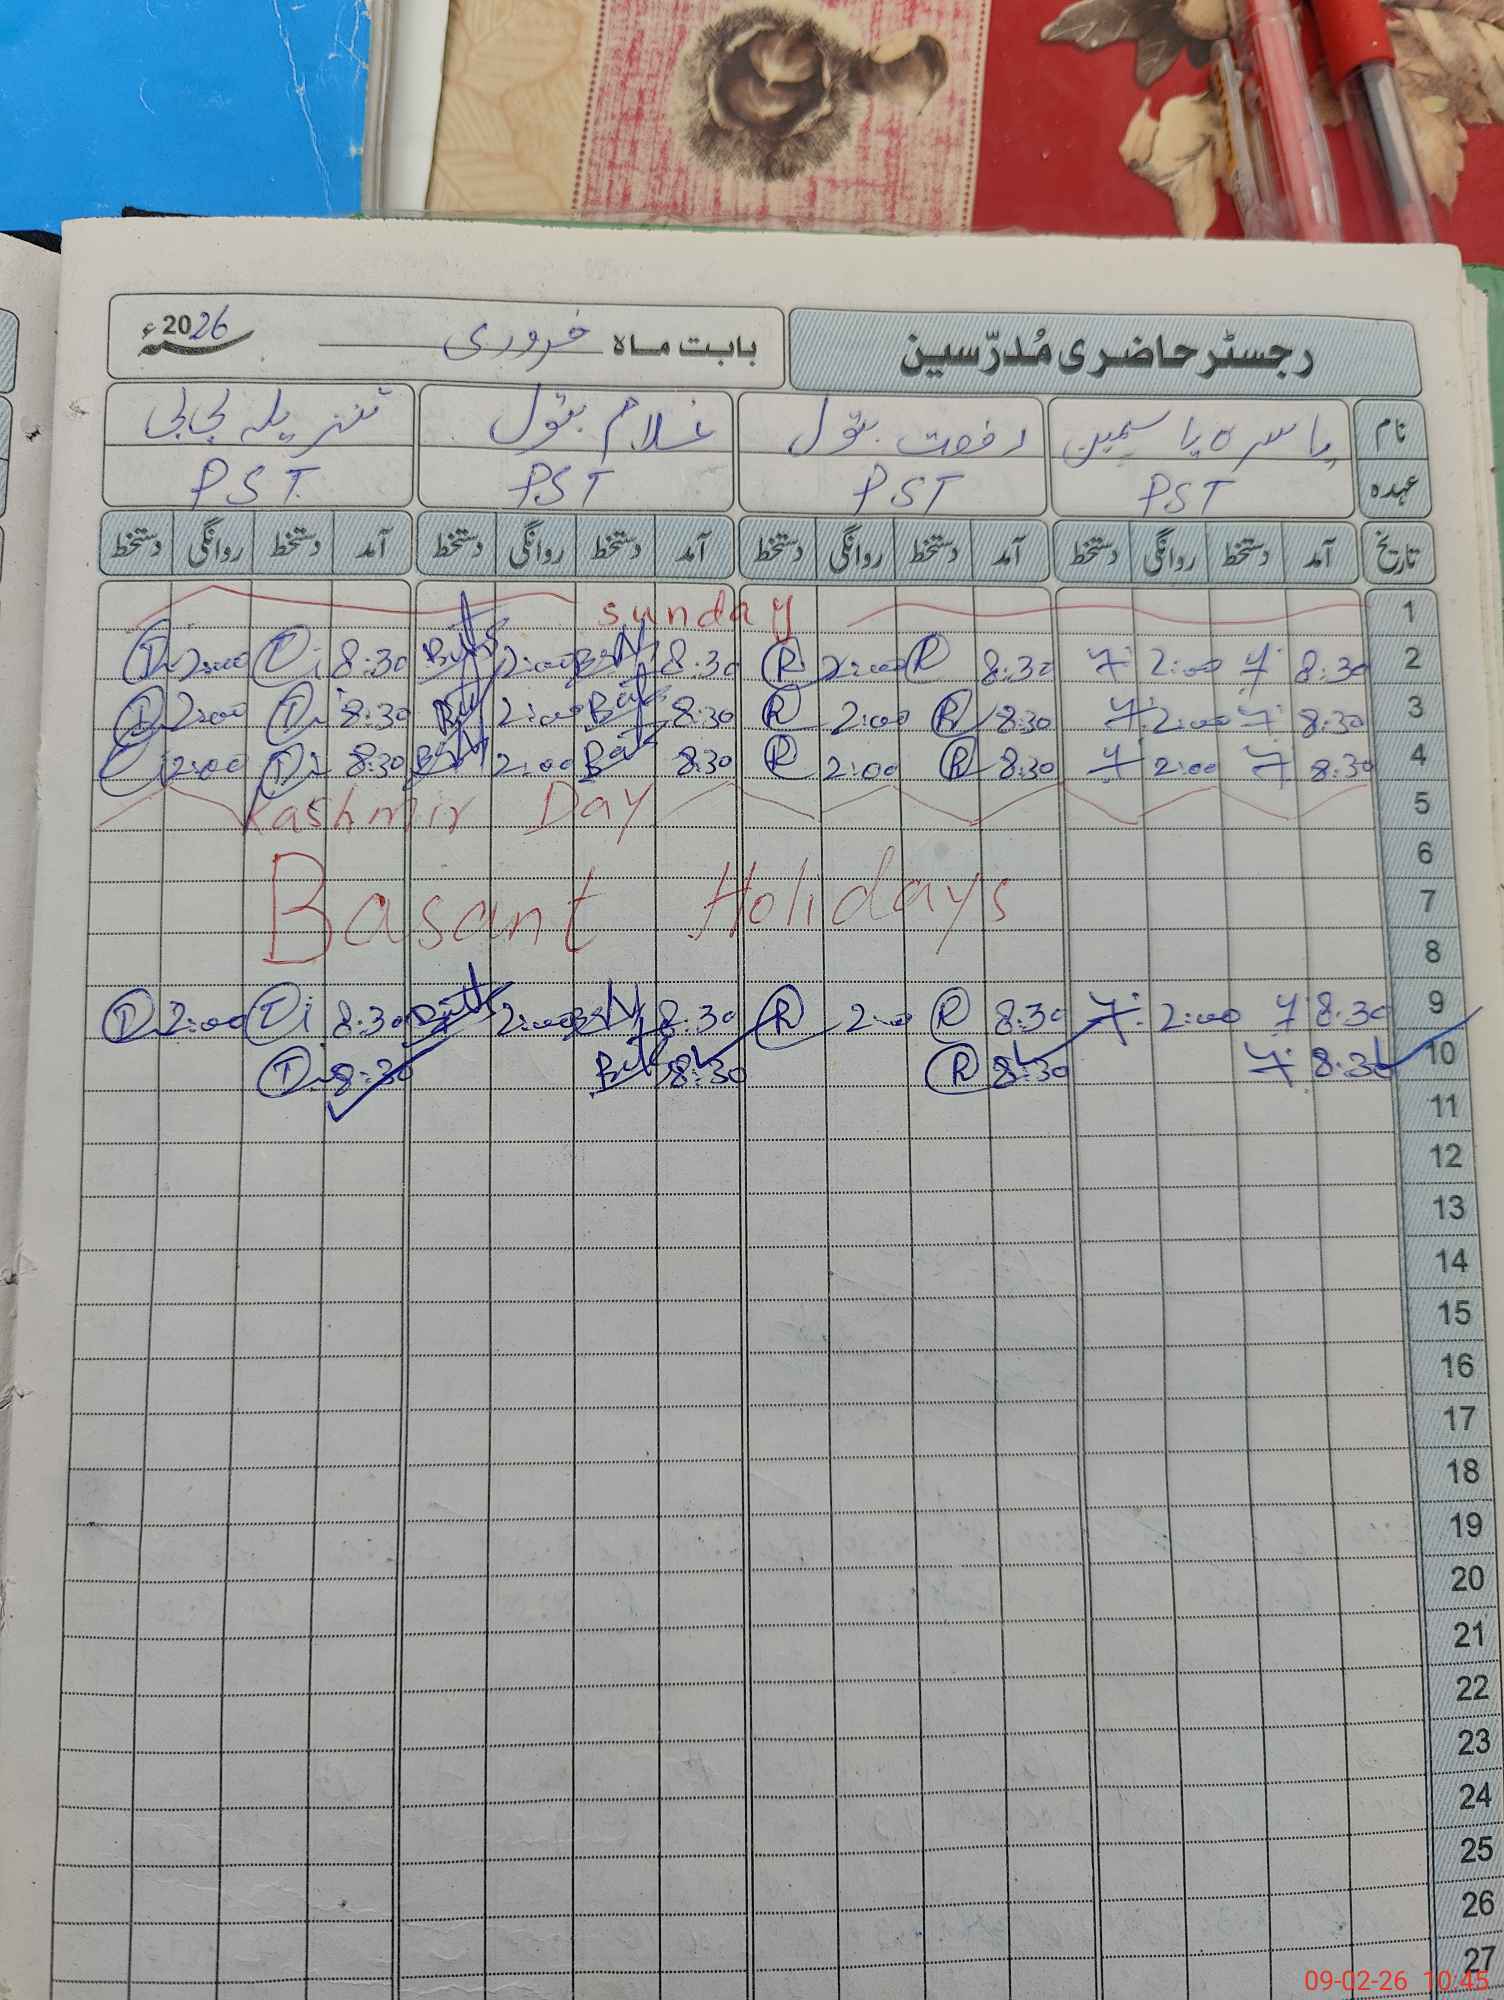 رجسٹر حاضری مُدرّسین بابت ماہ فروری سنہ 2026ء
نام یاسرہ یاسمین رفعت بتول غلام بتول تنزیلہ بی بی
عہدہ PST PST PST PST
تاریخ آمد دستخط روانگی دستخط آمد دستخط روانگی دستخط آمد دستخط روانگی دستخط آمد دستخط روانگی دستخط
1 sunday
2 8:30 2:00 8:30 R 2:00 R 8:30 2:00 8:30 2:00
3 8:30 2:00 8:30 R 2:00 R 8:30 2:00 8:30 2:00
4 8:30 2:00 8:30 R 2:00 R 8:30 2:00 8:30 2:00
5 Kashmir Day
6
7 Basant Holidays
8
9 8:30 2:00 8:30 R 2:00 R 8:30 2:00 8:30 2:00
10 8:30 8:30 R 8:30 8:30
11
12
13
14
15
16
17
18
19
20
21
22
23
24
25
26
27
09-02-26 10:45